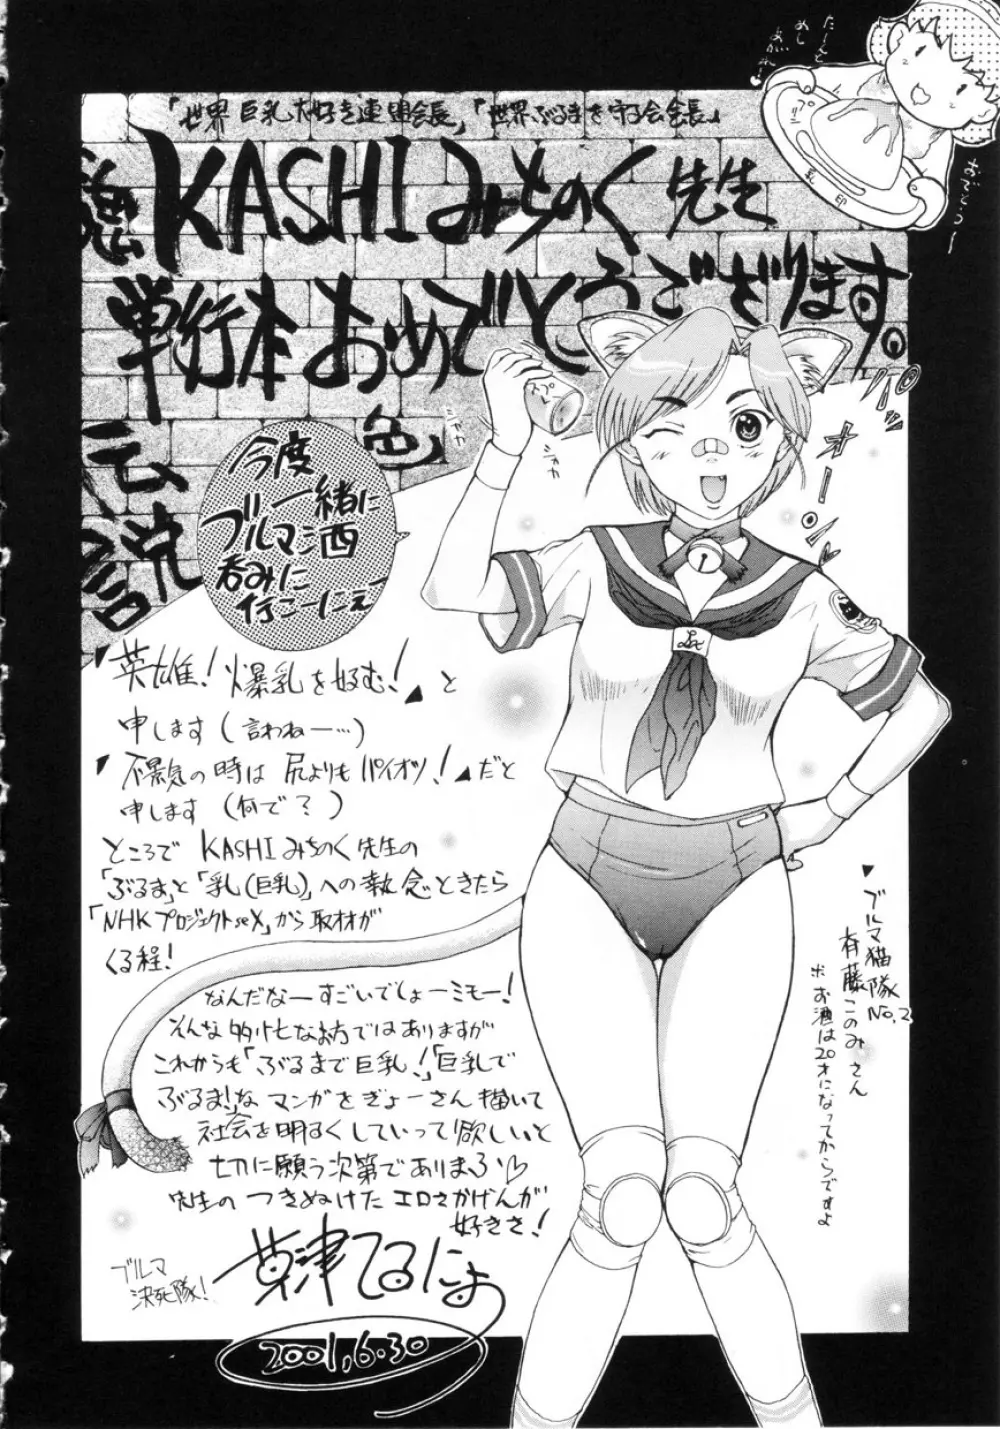 たーんと
めし
あがれ
おっとっとー
プリン
乳
印
「世界巨乳大好き連盟会長」「世界ぶるまを守る会会長」
KASHIみちのく先生
単行本おめでとうございます。
伝説
色
シャカ
シャカ
オーーン
今度
一緒に
ブルマ酒
呑みに
行こーにぇ
「英雄!爆乳を好む!」と
申します(言わねー…)
「不景気の時は尻よりもパイオツ!」だと
申します(何で?)
ところでKASHIみちのく先生の
「ぶるま」と「乳(巨乳)」への執念ときたら
「NHKプロジェクトseX」から取材が
くる程!
なんだなーすごいでしょーミモー!
そんな多忙なお方ではありますが
これからも「ぶるまで巨乳!」「巨乳で
ぶるま!」なマンガをぎょーさん描いて
社会を明るくしていって欲しいと
切に願う次第でありまふ♡
先生のつきぬけたエロさかげんが
好きさ!
ブルマ
決死隊!
草津てるにょ
2001,6.30
ブルマ猫隊No,2
有藤このみさん
※お酒は20才になってからですよ